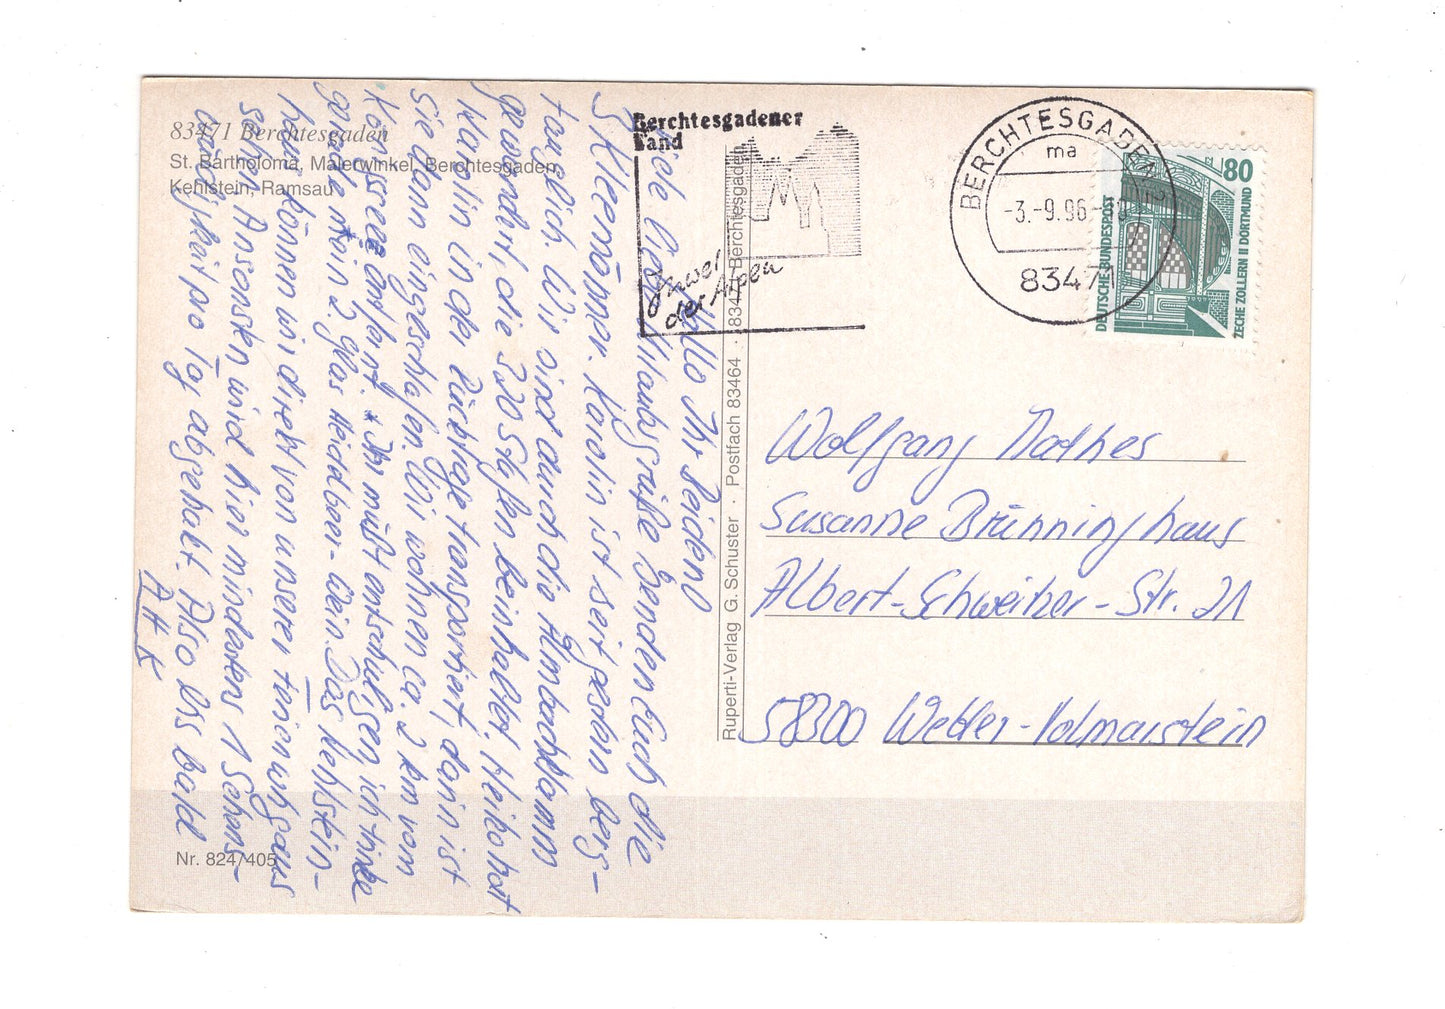 83471 Berchtesgaden
St. Bartholomä, Malerwinkel, Berchtesgaden,
Kehlstein, Ramsau
Hallo Ihr beiden!
Viele liebe Urlaubsgrüße senden Euch die
3 Kleer. Karolin ist seit gestern berg-
tauglich. Wir sind durch die Almbachklamm
gewandert, die 320 Stufen beinhaltet. Heiko hat
Karolin in der Rücktrage transportiert, darin ist
sie dann eingeschlafen. Wir wohnen ca. 2 km vom
Königssee entfernt. * Ihr müßt entschuldigen, ich trinke
gerade mein 2. Glas Heidelbeer-Wein. Das Kehlstein-
haus können wir direkt von unserer Ferienwhg aus
sehen. Ansonsten wird hier mindestens 1 Schons-
mahlzeit pro Tag abgehakt. Also bis bald
Nr. 824/405
Ruperti-Verlag G. Schuster · Postfach 83464 · 83471 Berchtesgaden
Berchtesgadener
Land
Juwel
der Alpen
BERCHTESGADEN 1
ma
-3.-9.96-
83471
80
DEUTSCHE BUNDESPOST
ZECHE ZOLLERN II DORTMUND
Wolfgang Mathes
Susanne Brünninghaus
Albert-Schweitzer-Str. 21
58300 Wetter-Volmarstein